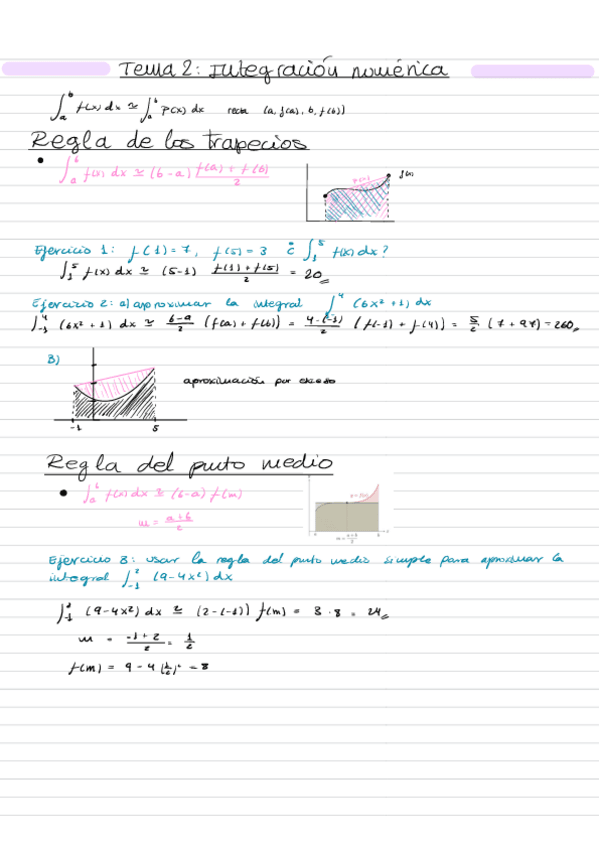 Tema 2: Integración numérica
∫_a^b f(x) dx ≃ ∫_a^b p(x) dx recta (a, f(a), b, f(b))
Regla de los trapecios
• ∫_a^b f(x) dx ≃ (b-a) (f(a) + f(b))/2
p(x) f(x)
Ejercicio 1: f(1)=7, f(5)=3 ¿ ∫_1^5 f(x) dx?
∫_1^5 f(x) dx ≃ (5-1) (f(1) + f(5))/2 = 20
Ejercicio 2: a) aproximar la integral ∫^4 (6x² + 1) dx
∫_-1^4 (6x² + 1) dx ≃ (b-a)/2 (f(a) + f(b)) = (4-(-1))/2 (f(-1) + f(4)) = 5/2 (7 + 97) = 260
B)
aproximación por exceso
-1 5
Regla del punto medio
• ∫_a^b f(x) dx ≃ (b-a) f(m)
m = (a+b)/2
y = f(x)
m = (a+b)/2
Ejercicio 3: usar la regla del punto medio simple para aproximar la
integral ∫_-1^2 (9-4x²) dx
∫_-1^2 (9-4x²) dx ≃ (2-(-1)) f(m) = 3 · 8 = 24
m = (-1+2)/2 = 1/2
f(m) = 9 - 4 (1/2)² = 8